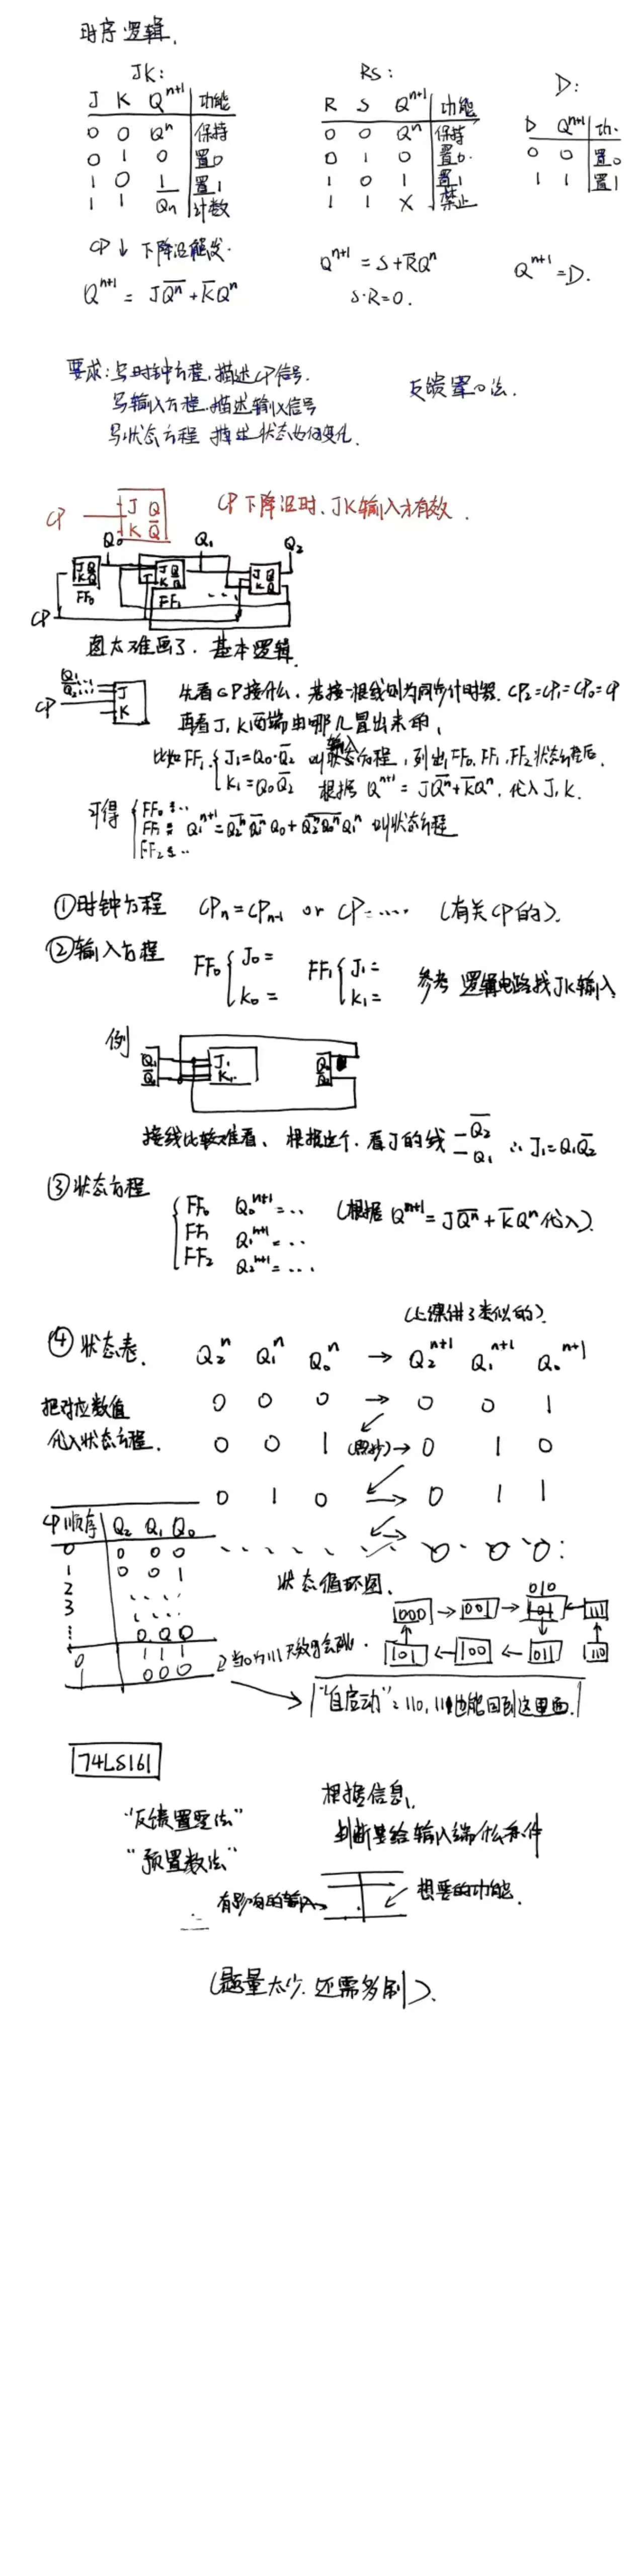 时序逻辑.
JK:
J K Qⁿ⁺¹ 功能
0 0 Qⁿ 保持
0 1 0 置0
1 0 1 置1
1 1 Q̅n 计数
CP↓ 下降沿触发.
Qⁿ⁺¹ = JQ̅ⁿ + K̅Qⁿ
RS:
R S Qⁿ⁺¹ 功能
0 0 Qⁿ 保持
0 1 0 置0.
1 0 1 置1
1 1 X 禁止
Qⁿ⁺¹ = S + R̅Qⁿ
S·R=0.
D:
D Qⁿ⁺¹ 功.
0 0 置0
1 1 置1
Qⁿ⁺¹=D.
要求: 写时钟方程, 描述CP信号.
写输入方程, 描述输入信号
写状态方程 描述状态如何变化.
反馈置0法.
CP J Q
K Q̅
CP下降沿时、JK输入才有效.
Q₀ Q₁ Q₂
J Q J Q J Q
K Q̅ K Q̅ K Q̅
FF₀ FF₁
CP
图太难画了. 基本逻辑.
CP J
K
先看CP接什么. 若接一根线则为同步计时器. CP₂=CP₁=CP₀=CP
再看J、K两端由哪儿冒出来的,
比如FF₁ { J₁=Q₀·Q̅₂ 叫输入方程, 列出FF₀, FF₁, FF₂状态方程后.
K₁=Q₀Q̅₂ 根据 Qⁿ⁺¹ = JQ̅ⁿ+K̅Qⁿ, 代入J、K.
可得 { FF₀: ..
FF₁: Q₁ⁿ⁺¹=Q̅₂ⁿQ̅₁ⁿQ₀+Q̅₂ⁿQ₀ⁿQ₁ⁿ 叫状态方程
FF₂: ..
①时钟方程 CPn=CPn-1 or CP=.... (有关CP的).
②输入方程 FF₀ { J₀= FF₁ { J₁= 参考 逻辑电路找JK输入.
K₀= K₁=
例
J₁
K₁.
接线比较难看、根据这个. 看J的线 — Q̅₂
— Q₁ ∴ J₁=Q₁Q̅₂
③状态方程
{ FF₀ Q₀ⁿ⁺¹=.. (根据 Qⁿ⁺¹=JQ̅ⁿ+K̅Qⁿ代入)
FF₁ Q₁ⁿ⁺¹=..
FF₂ Q₂ⁿ⁺¹=...
(上课讲了类似的).
④状态表. Q₂ⁿ Q₁ⁿ Q₀ⁿ → Q₂ⁿ⁺¹ Q₁ⁿ⁺¹ Q₀ⁿ⁺¹
把对应数值 0 0 0 → 0 0 1
代入状态方程. 0 0 1 (照抄)→ 0 1 0
0 1 0 → 0 1 1
0 0 0:
CP顺序 Q₂ Q₁ Q₀
0 0 0 0
1 0 0 1
2 ....
3 ....
⋮ 0 0 0
0 1 1 1
1 0 0 0
状态循环图.
000 → 001 → 010 ← 111
101 ← 100 ← 011 110
"自启动": 110, 111也能回到这里面.
74LS161
"反馈置零法"
"预置数法"
根据信息,
判断要给输入端什么条件
有影响的输入→
想要的功能.
(题量太少. 还需多刷).